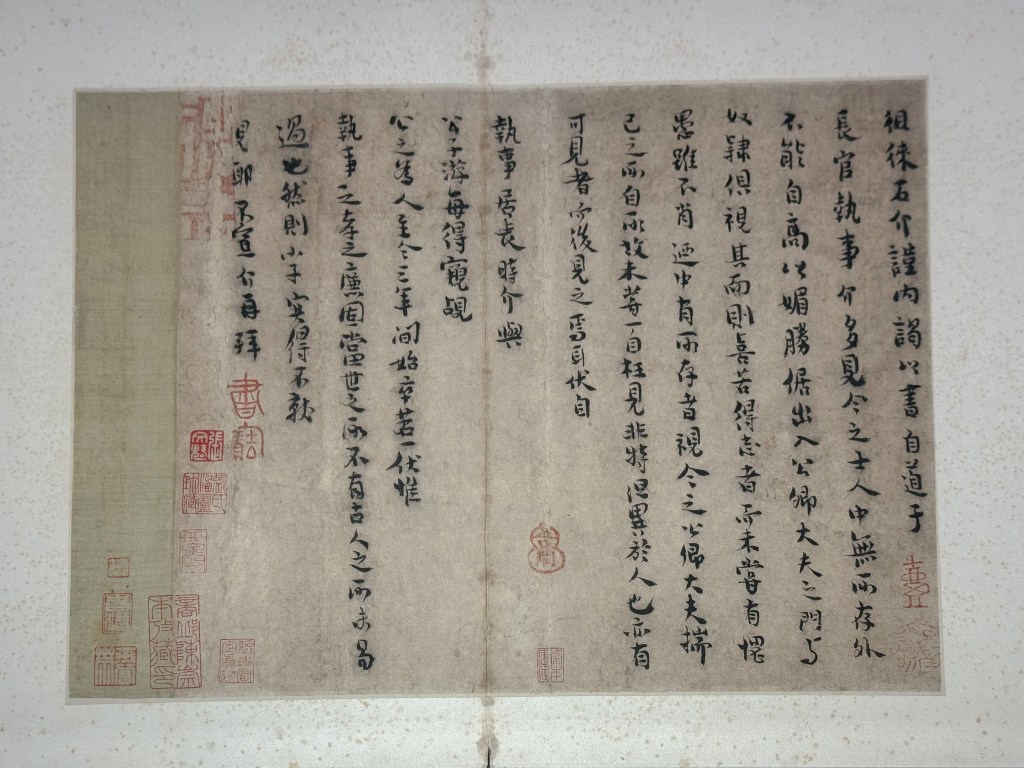 徂徠石介謹內謁以書自道于
長官執事介多見今之士人中無所存外
不能自高以媚勝倨出入公卿大夫之門與
奴隸俱視其面則喜若得志者而未嘗有愧
愚雖不肖迺中有所存者視今之公卿大夫揣
己之所自所故未嘗一自枉見非特但異於人也亦有
可見者而後見之焉耳伏自
執事居長時介與
公子游每得窺覘
公之為人至今三年間始卒若一伏惟
執事之孝之廉固當世之所不有古人之所未易
過也然則小子安得不就
見耶不宣介再拜
書寶